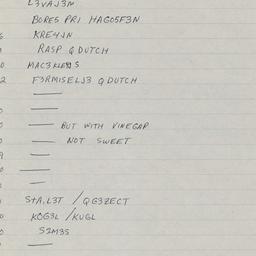 L3VAJ3N
BORES PRI HAGO5F3N
KRE4JN
RASP Q DUTCH
MAC3
F3RMISELJ3 Q DUTCH
—
—
— BUT WITH VINEGAR
— NOT SWEET
—
—
—
StA,L3T / QG3ZECT
KOG3L / KUGL
S2M3S
—